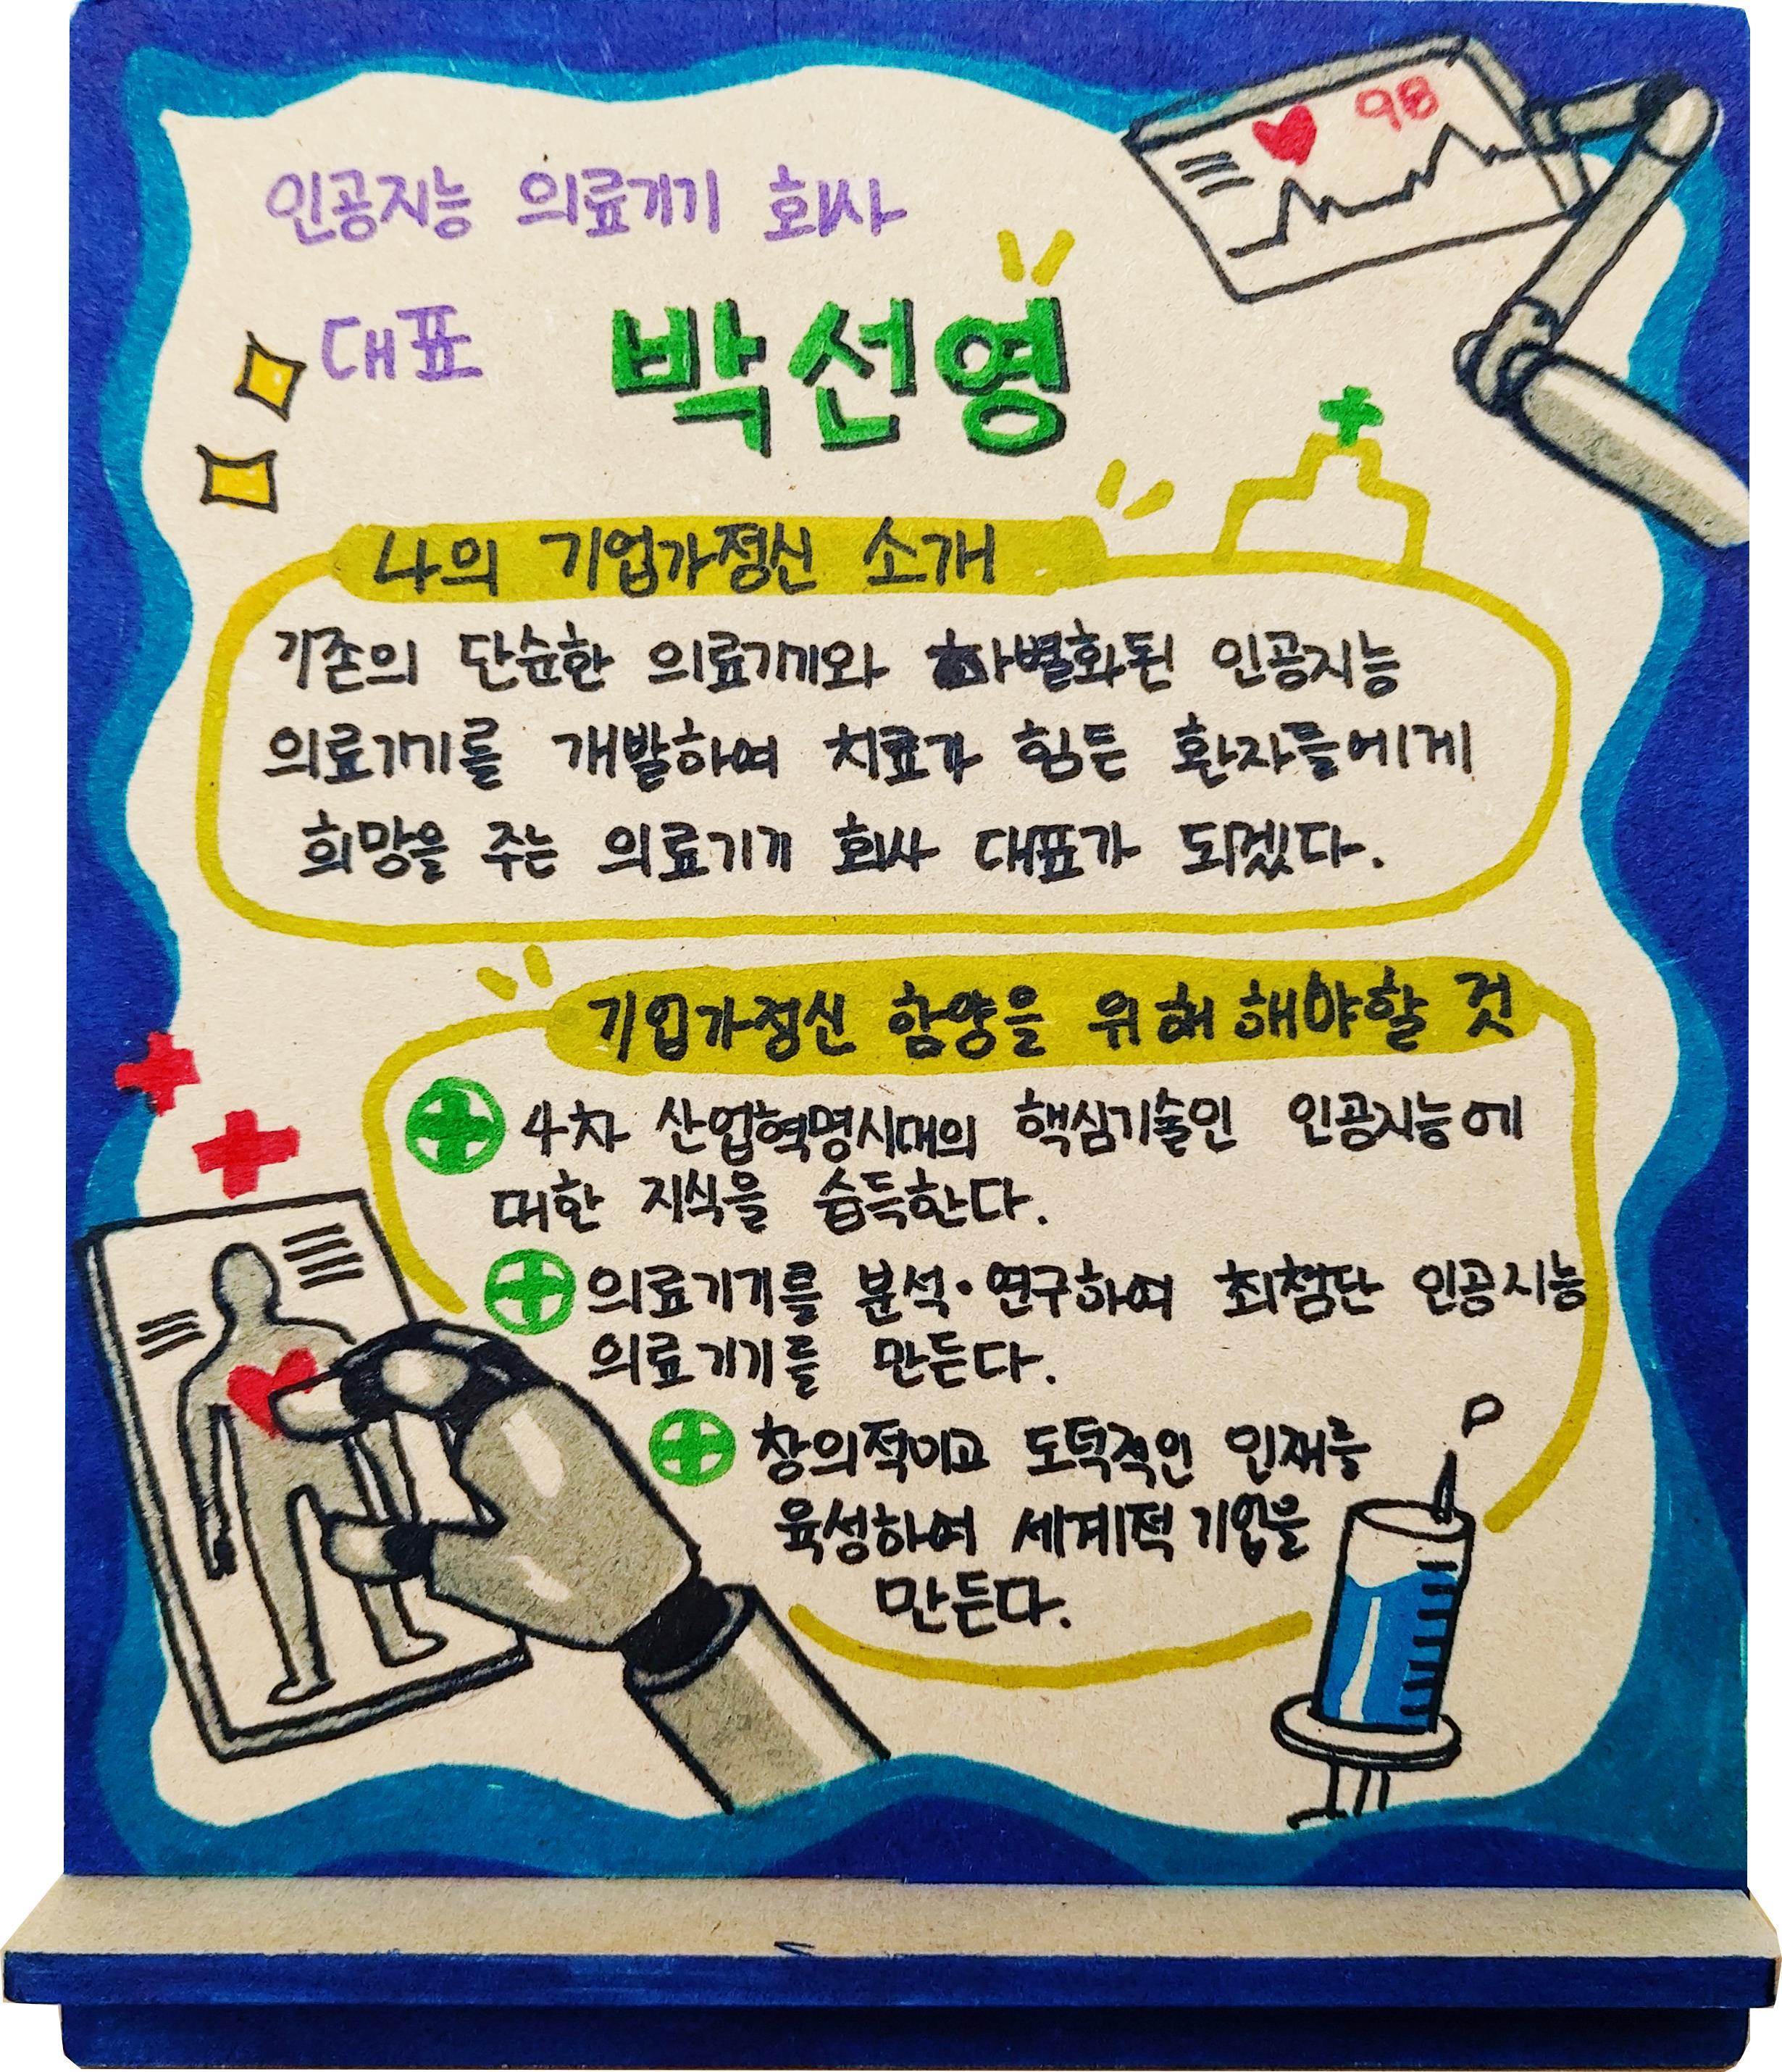 98
인공지능 의료기기 회사
대표 박선영
나의 기업가정신 소개
기존의 단순한 의료기기와 차별화된 인공지능
의료기기를 개발하여 치료가 힘든 환자들에게
희망을 주는 의료기기 회사 대표가 되겠다.
기업가정신 함양을 위해 해야할 것
4차 산업혁명시대의 핵심기술인 인공지능에
대한 지식을 습득한다.
의료기기를 분석·연구하여 최첨단 인공지능
의료기기를 만든다.
창의적이고 도덕적인 인재를
육성하여 세계적 기업을
만든다.